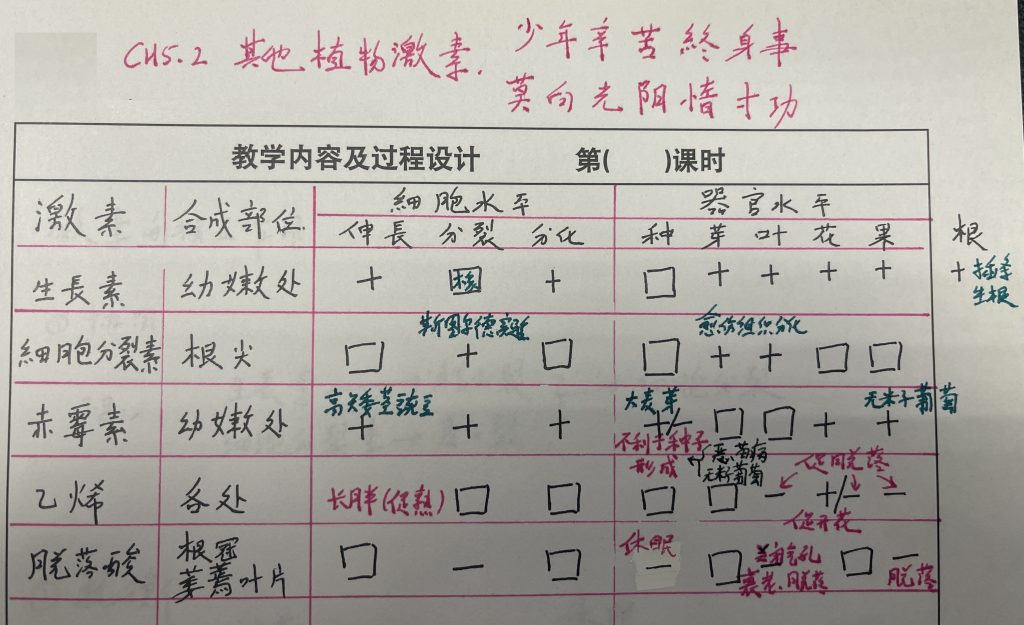 CH5.2 其他植物激素. 少年辛苦終身事
莫向光阴惰寸功
教学内容及过程设计 第( )课时
激素 合成部位. 細胞水平 器官水平
伸長 分裂 分化 种 芽 叶 花 果 根
生長素 幼嫩处 + 核 + □ + + + + + 插条
生根
斯图尔德实验 愈伤组织分化
細胞分裂素 根尖 □ + □ □ + + □ □
高矢委茎豌豆 大麦芽 无籽葡萄
赤霉素 幼嫩处 + + + +/- □ □ + +
不利于种子 恶苗病 促脱落
形成 无籽葡萄
乙烯 各处 长胖(促熟) □ □ □ □ - +/- -
促开花
脱落酸 根冠 □ - □ 休眠 - □ 关闭气孔 - □ -
萎蔫叶片 衰老、脱落 脱落